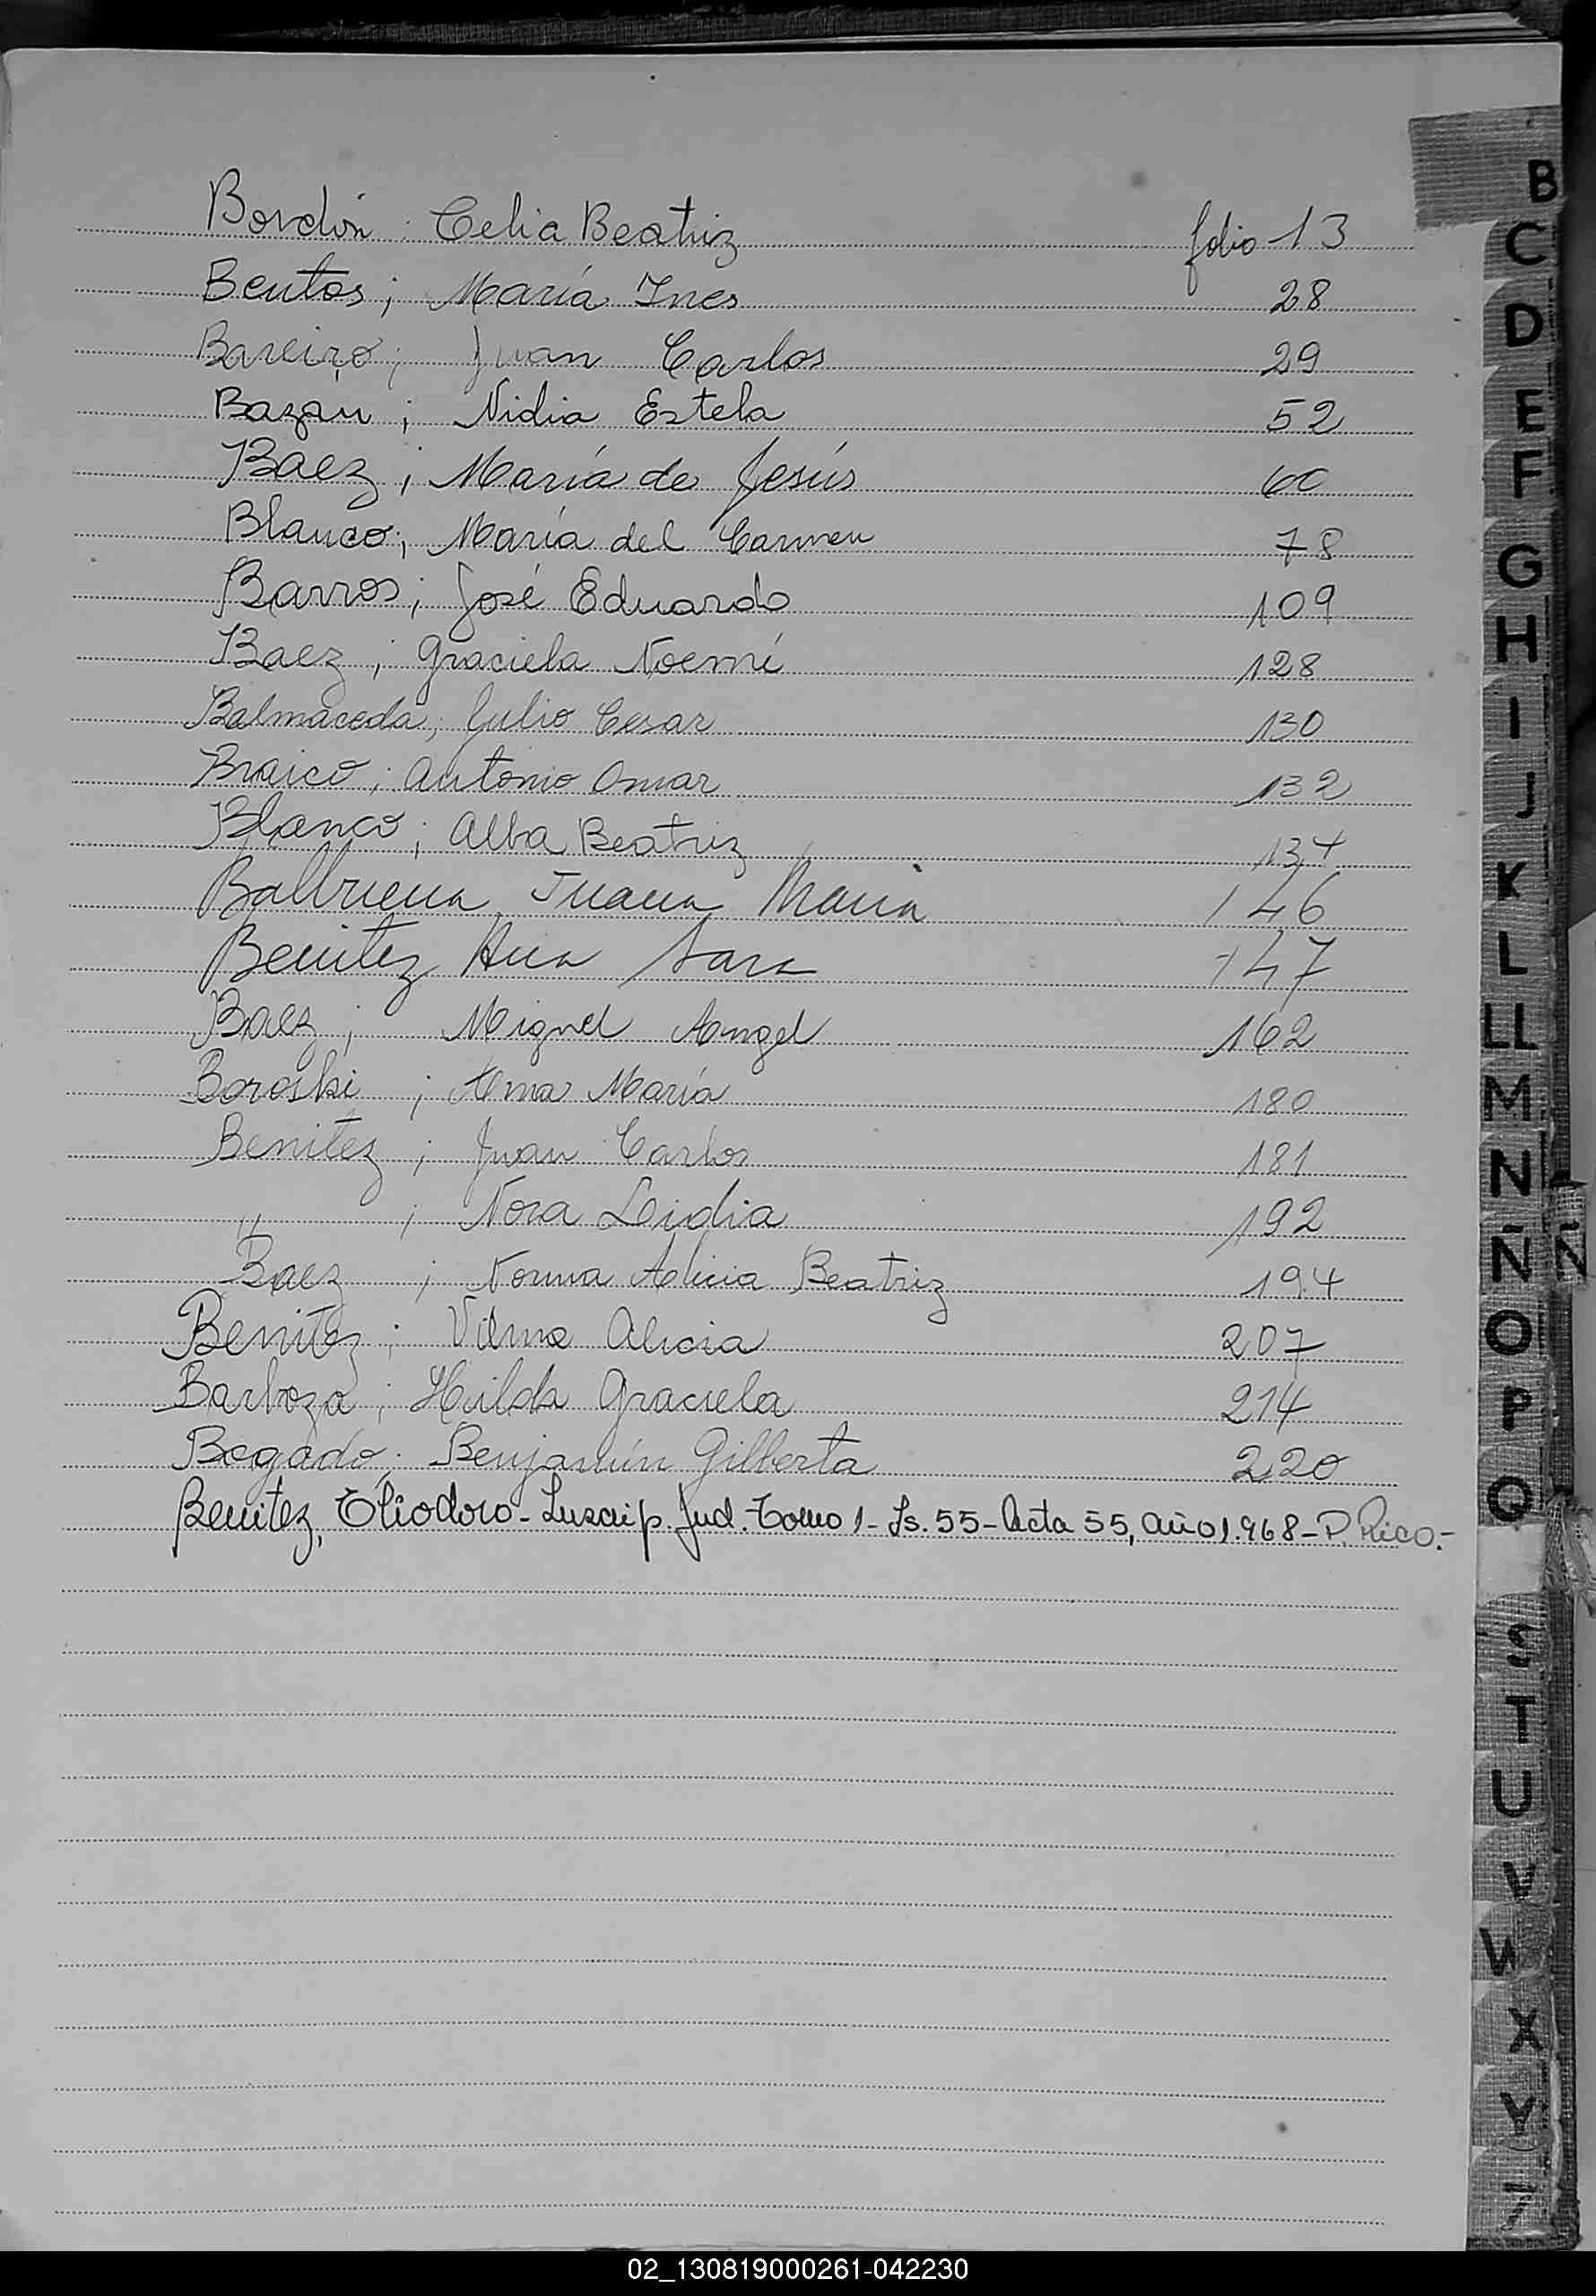 Bordón; Celia Beatriz folio 13
Bentos; María Ines 28
Bareiro; Juan Carlos 29
Bazan; Nidia Estela 52
Baez; María de Jesús 60
Blanco; María del Carmen 78
Barros; José Eduardo 109
Baez; Graciela Noemí 128
Balmaceda; Julio Cesar 130
Braico; Antonio Omar 132
Blanco; Alba Beatriz 134
Balbuena Juana Maria 146
Benitez Ana Sara 147
Baez; Miguel Angel 162
Boroski; Ana María 180
Benitez; Juan Carlos 181
"; Nora Lidia 192
Baez; Norma Alicia Beatriz 194
Benitez; Vilma Alicia 207
Barboza; Hilda Graciela 214
Bogado; Benjamín Gilberta 220
Benitez, Eliodoro - Inscrip. Jud. Tomo 1 - Fs. 55 - Acta 55, año 1.968 - P. Rico.-
B
C
D
E
F
G
H
I
J
K
L
LL
M
N
Ñ
O
P
Q
T
U
V
W
X
Y
02_130819000261-042230